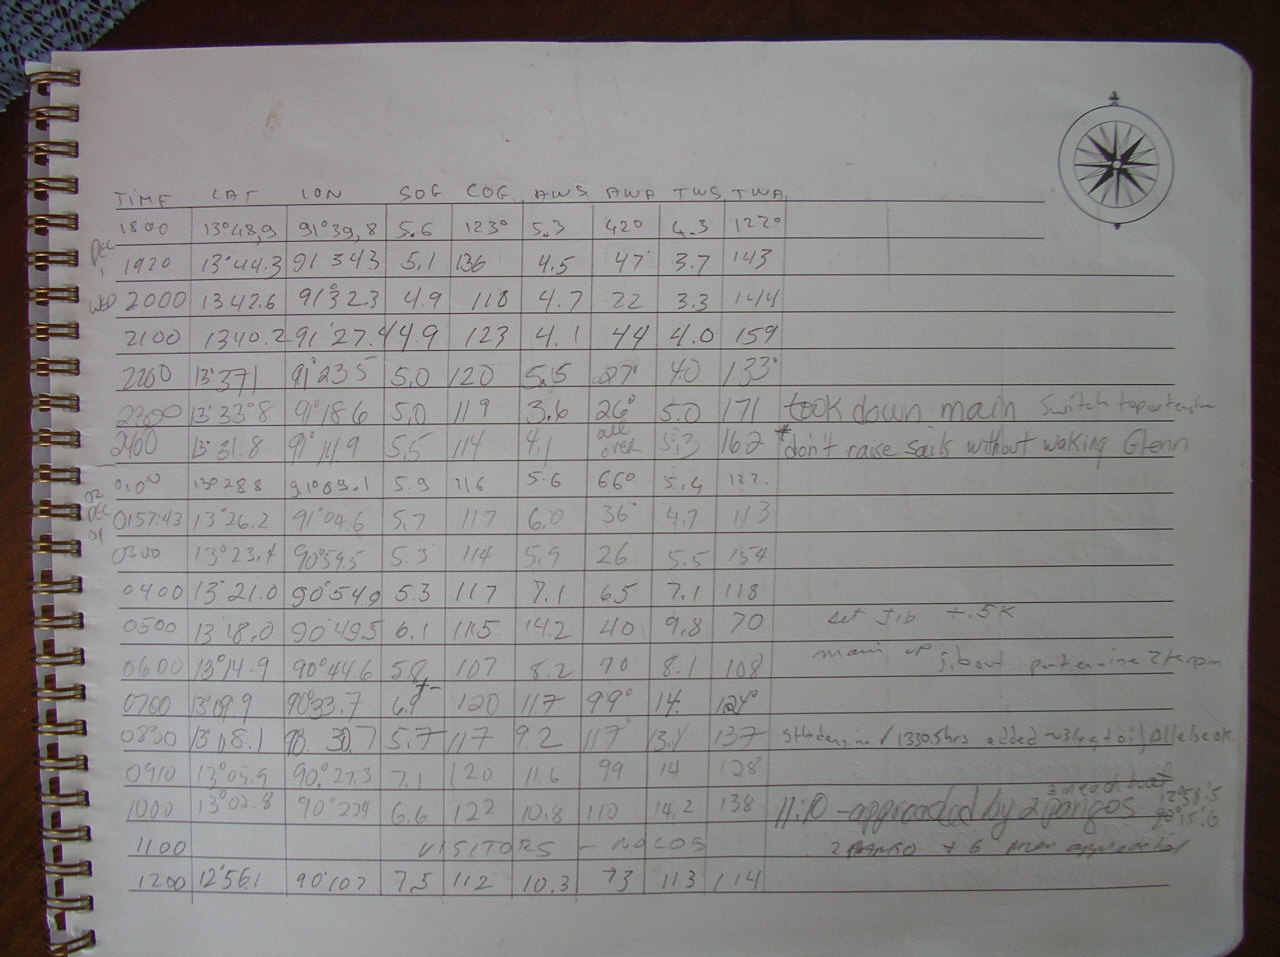 TIME LAT LON SOG COG AWS AWA TWS TWA
1800 13°48,9 91°39,8 5.6 123° 5.3 420 4.3 122°
DEC 1 1920 13°44.3 91 343 5.1 136 4.5 47 3.7 143
WED 2000 13 42.6 91°32.3 4.9 118 4.7 22 3.3 144
2100 1340.2 91°27.4 4.9 123 4.1 44 4.0 159
2200 13°371 91°235 5.0 120 5.5 27° 40 133°
2300 13°33°8 91°186 5.0 119 3.6 26° 5.0 171 took down main Switch to port engine
2400 13°31.8 91°149 5.5 114 4.1 all over 5.3 162 *don't raise sails without waking Glenn
02 DEC 0100 13°288 91°09.1 5.9 116 5.6 66° 5.4 122.
0157:43 13°26.2 91°04.6 5.7 117 6.0 36° 4.7 113
0300 13°23.4 90°59.5 5.3 114 5.9 26 5.5 154
0400 13°21.0 90°549 5.3 117 7.1 65 7.1 118
0500 13°18.0 90°49.5 6.1 115 14.2 40 9.8 70 set Jib +.5K
0600 13°14.9 90°44.6 5.8 107 8.2 70 8.1 108 main up jib out. port engine 2K rpm
0700 13°09.9 90°33.7 6.9 120 11.7 99° 14. 124°
0830 13°08.1 90. 30.7 5.7 117 9.2 117° 13.1 137 engine 1330.5hrs added oil
0910 13°05.9 90.°27.3 7.1 120 11.6 99 14 128
1000 13°02.8 90°224 6.6 122 10.8 110 14.2 138 11:10 - approached by 2 pangos 3 in each boat 12°58'.5 90°15'.6
1100 VISITORS - NO LOS 2 + 6 men approached
1200 12°561 90°107 7.5 112 10.3 73 11.3 114